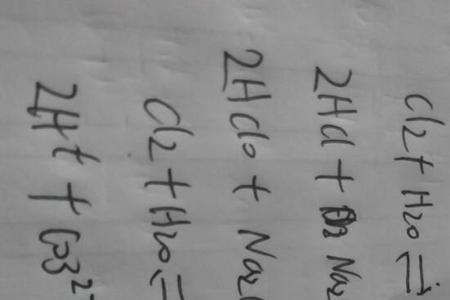 Cl2+H2O⇌
2HCl+Na2
2HClO+Na2
Cl2+H2O=
2H++CO32-